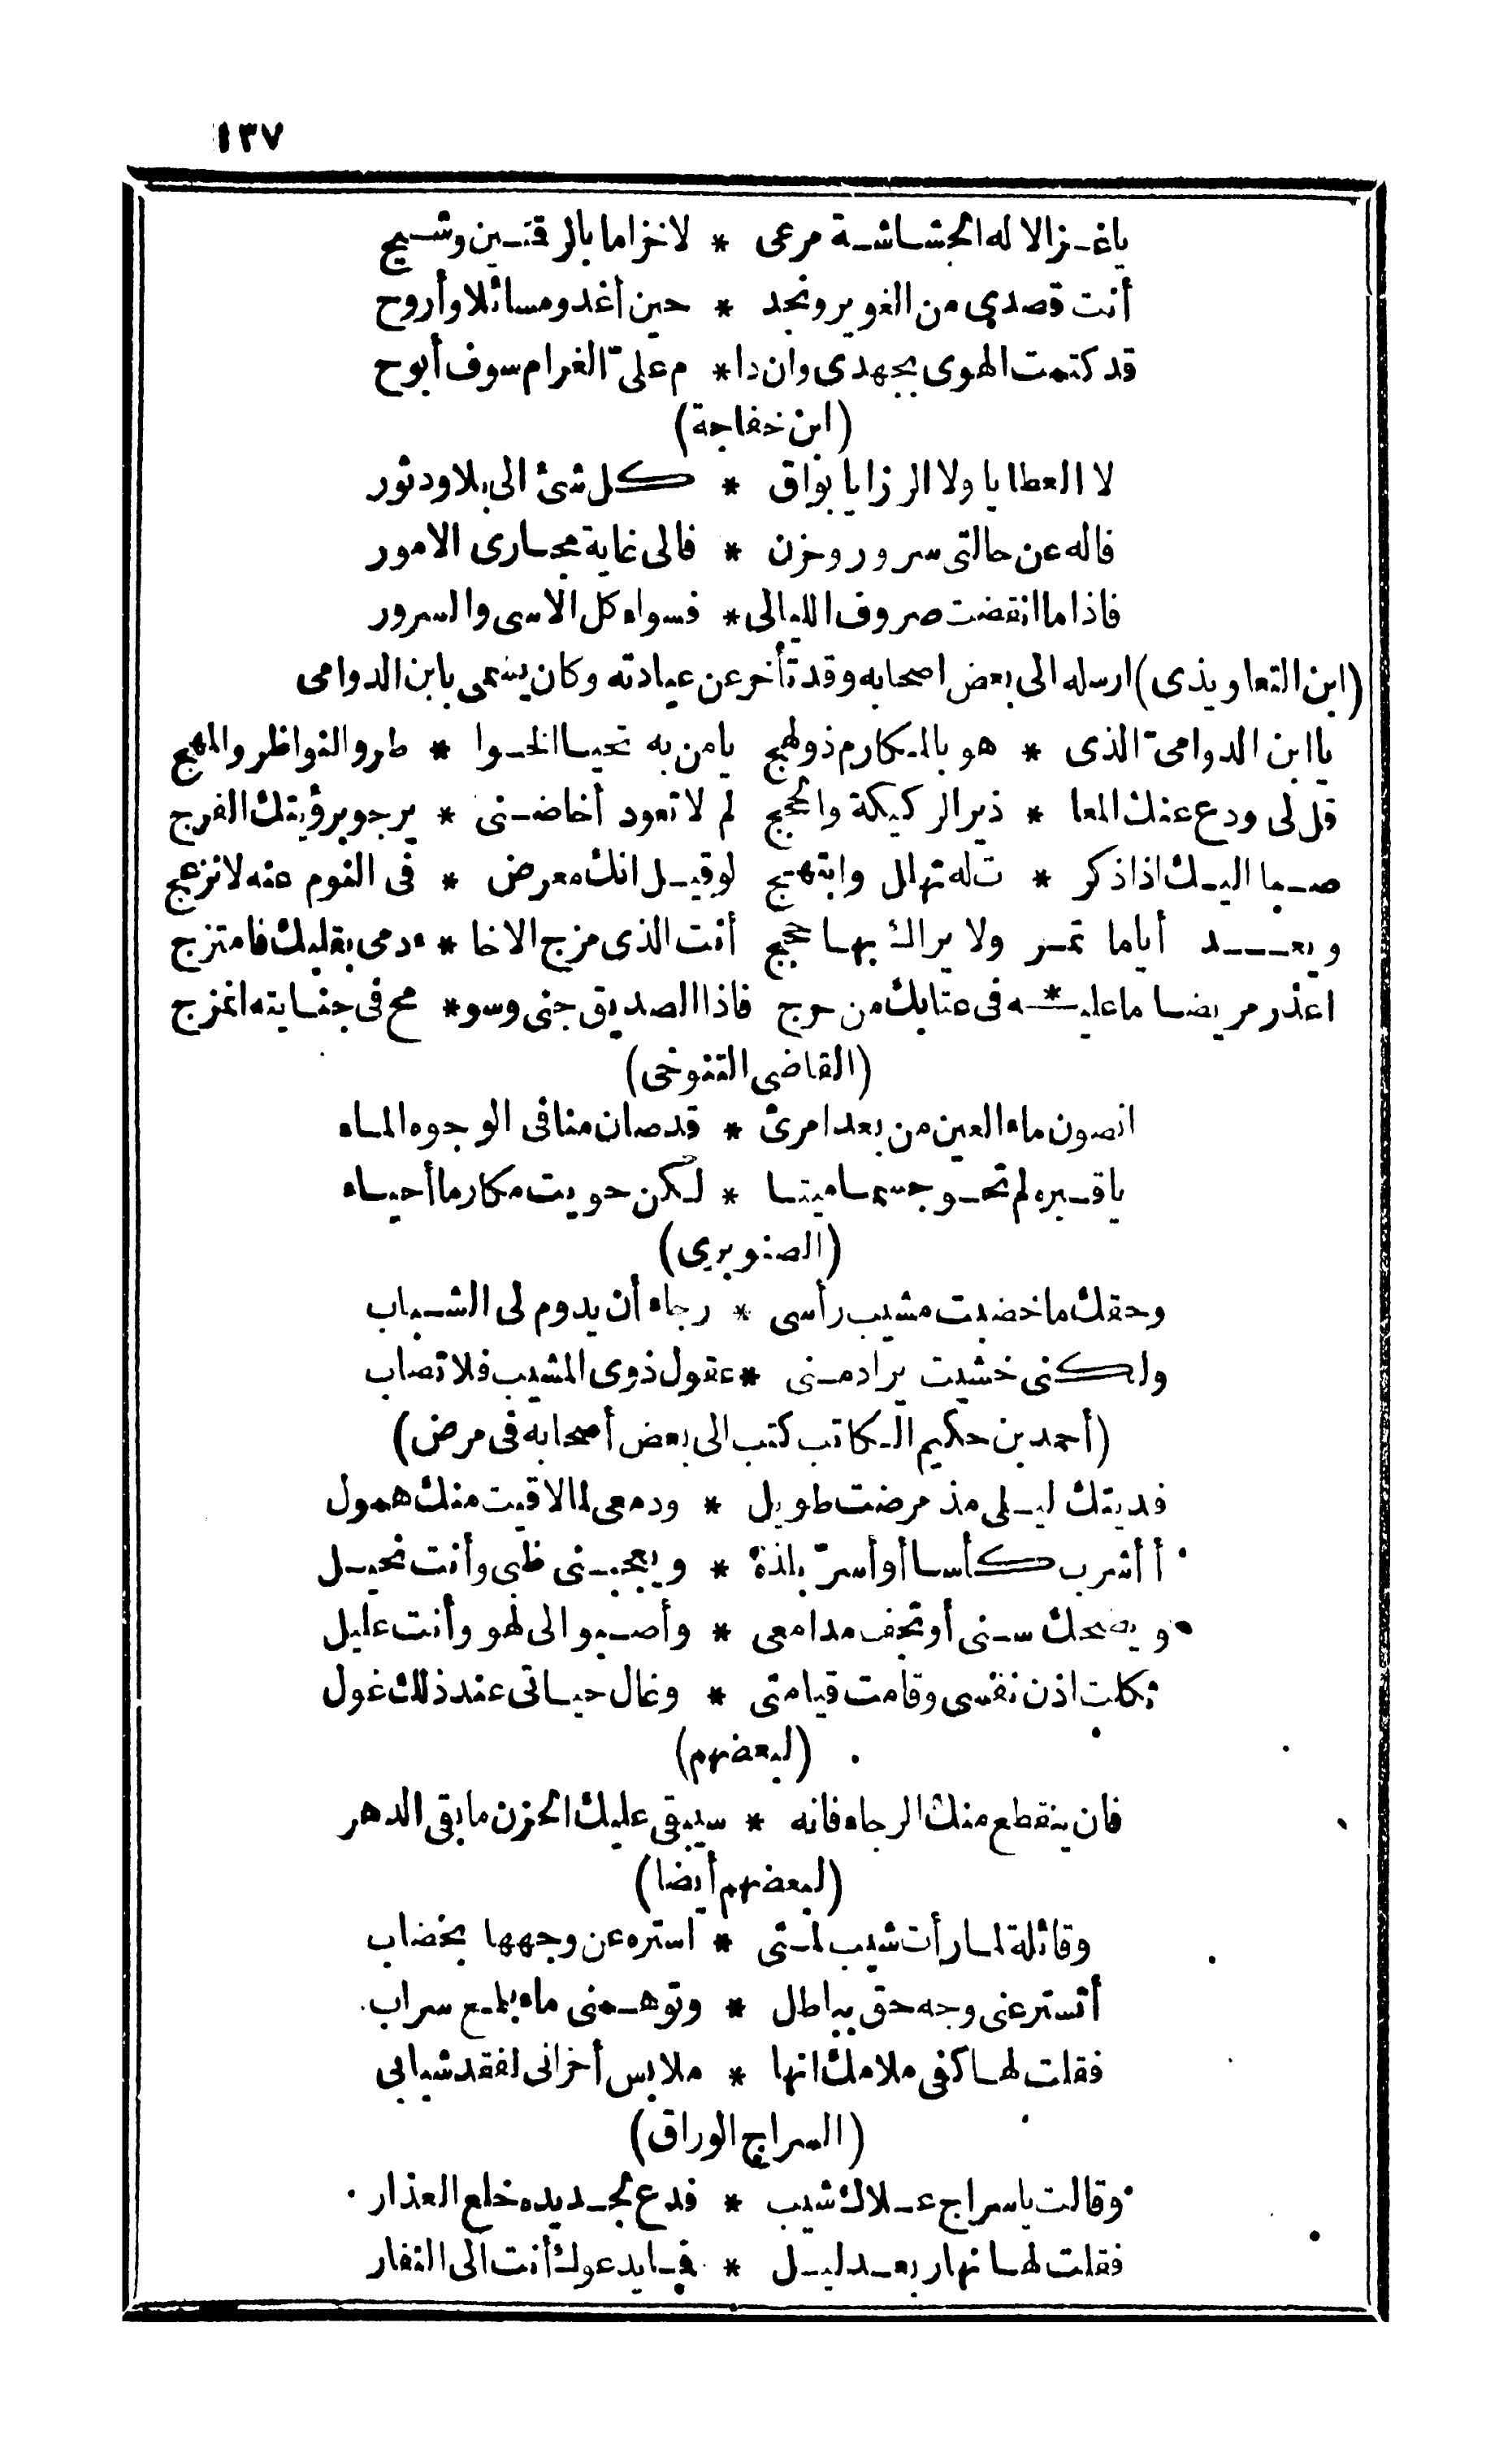 ١٣٧
ياغزالا له الحشاشة مرعى * لاخزاما بالرقتين وشيح
أنت قصدي من الغوير ونجد * حين أغدو مسائلا وأروح
قد كتمت الهوى بجهدى وان دا * م علىّ الغرام سوف أبوح
(ابن خفاجة)
لا العطايا ولا الرزايا بواق * كل شئ الى بلا ودثور
فاله عن حالتى سرور وحزن * فالى غاية مجارى الامور
فاذا ما انقضت صروف الليالى * فسواء كل الاسى والسرور
(ابن التعاويذى) ارسله الى بعض اصحابه وقد تأخر عن عيادته وكان يسمى بابن الدوامى
يا ابن الدوامىّ الذى * هو بالمكارم ذو لهج يا من به تحيا الخوا * طر والنواظر والمهج
قل لى ودع عنك المعا * ذير الركيكة والحجج لم لا تعود أخا ضنى * يرجو برؤيتك الفرج
صبا اليك اذا ذكر * ت له تهلل وابتهج لو قيل انك معرض * فى النوم عنه لانزعج
ويعد أياما تمر ولا يراك بها حجج أنت الذى مزج الاخا * ء دمى بقلبك فامتزج
اعذر مريضا ما عليه * فى عتابك من حرج فاذا الصديق جنى وسو * مح فى جنايته انمزج
(القاضى التنوخى)
انصون ماء العين من بعد امرئ * قد صان منا فى الوجوه الماء
يا قبره لم تحو جسما ميتا * لكن حويت مكارما أحياء
(الصنوبري)
وحقك ما خضبت مشيب رأسى * رجاء أن يدوم لى الشباب
ولكنى خشيت يراد منى * عقول ذوى المشيب فلا تصاب
(أحمد بن حكيم الكاتب كتب الى بعض أصحابه فى مرض)
فديتك ليلى مذ مرضت طويل * ودمعى لما لاقيت منك همول
أأشرب كأسا أو أسرّ بلذة * ويعجبنى ظبى وأنت نحيل
ويضحك سنى أو تجف مدامعى * وأصبو الى لهو وأنت عليل
ثكلت اذن نفسى وقامت قيامتى * وغال حياتى عند ذلك غول
(لبعضهم)
فان ينقطع منك الرجاء فانه * سيبقى عليك الحزن ما بقى الدهر
(لبعضهم أيضا)
وقائلة لما رأت شيب لمتى * استره عن وجهها بخضاب
أتستر عنى وجه حق بباطل * وتوهمنى ماء بلمع سراب
فقلت لها كفى ملامك انها * ملابس أحزانى لفقد شبابى
(السراج الوراق)
وقالت يا سراج علاك شيب * فدع لجديده خلع العذار
فقلت لها نهار بعد ليل * فما يدعوك أنت الى النفار